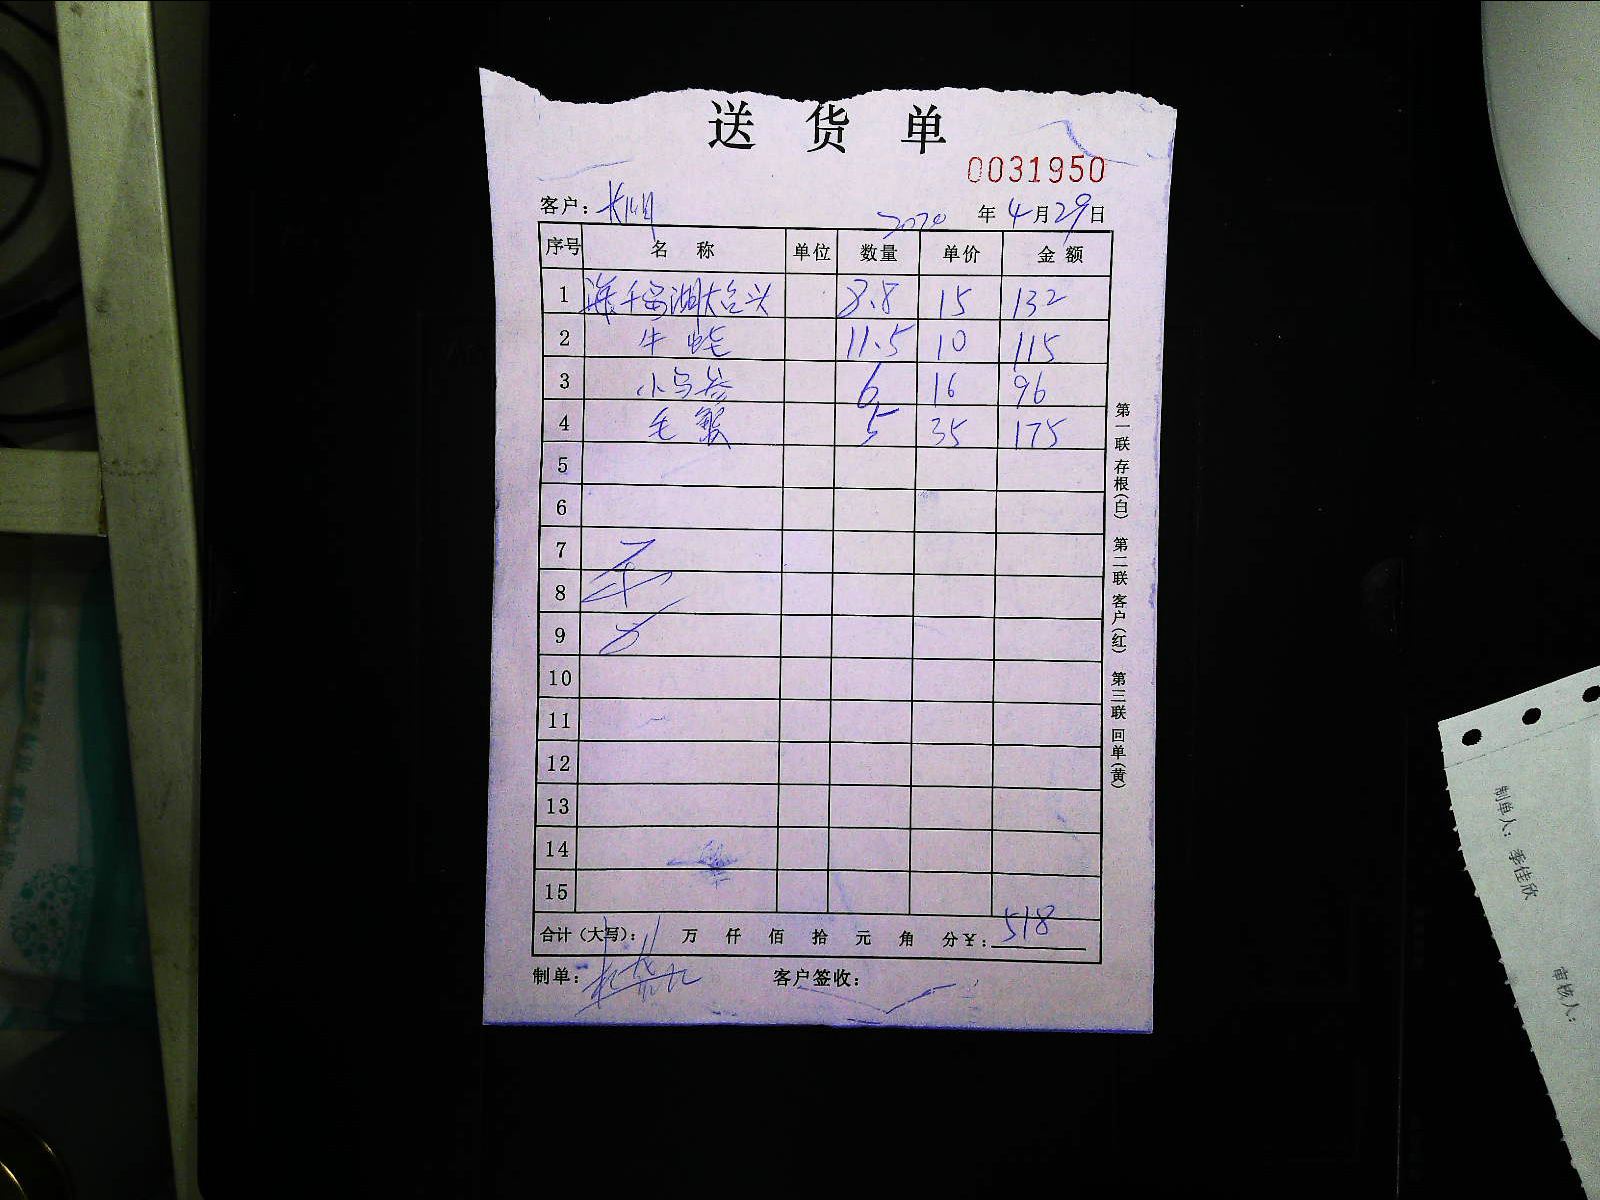 送货单
0031950
客户：
2020年4月29日
序号 名称 单位 数量 单价 金额
1 8.8 15 132
2 牛蛙 11.5 10 115
3 小乌参 6 16 96
4 毛蟹 5 35 175
5
6
7
8
9
10
11
12
13
14
15
合计（大写）： 万 仟 佰 拾 元 角 分￥：518
制单：
客户签收：
第一联 存根（白） 第二联 客户（红） 第三联 回单（黄）
制单人：季佳欣
审核人：